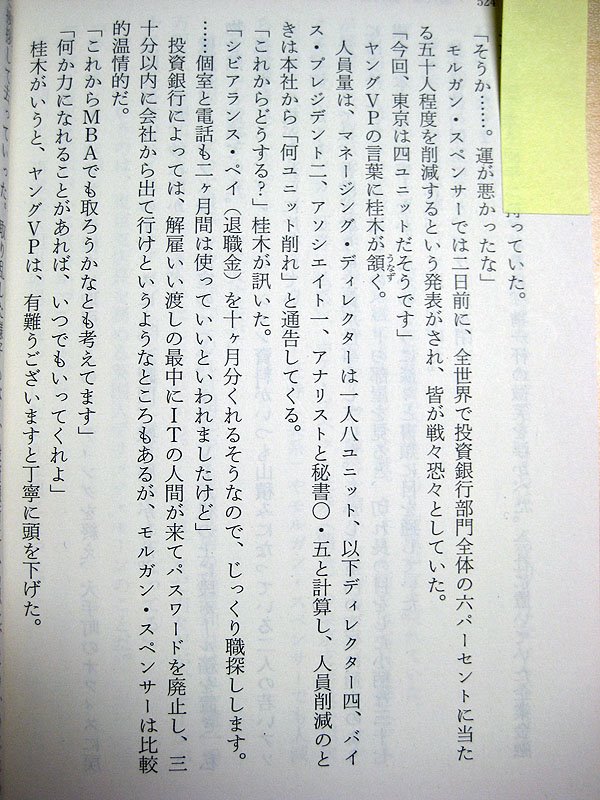 524
持っていた。
「そうか……。運が悪かったな」
モルガン・スペンサーでは二日前に、全世界で投資銀行部門全体の六パーセントに当た
る五十人程度を削減するという発表がされ、皆が戦々恐々としていた。
「今回、東京は四ユニットだそうです」
ヤングVPの言葉に桂木が頷く。
うなず
人員量は、マネージング・ディレクターは一人八ユニット、以下ディレクター四、バイ
ス・プレジデント二、アソシエイト一、アナリストと秘書〇・五と計算し、人員削減のと
きは本社から「何ユニット削れ」と通告してくる。
「これからどうする?」桂木が訊いた。
「シビアランス・ペイ（退職金）を十ヶ月分くれるそうなので、じっくり職探しします。
……個室と電話も二ヶ月間は使っていいといわれましたけど」
投資銀行によっては、解雇いい渡しの最中にITの人間が来てパスワードを廃止し、三
十分以内に会社から出て行けというようなところもあるが、モルガン・スペンサーは比較
的温情的だ。
「これからMBAでも取ろうかなとも考えてます」
「何か力になれることがあれば、いつでもいってくれよ」
桂木がいうと、ヤングVPは、有難うございますと丁寧に頭を下げた。